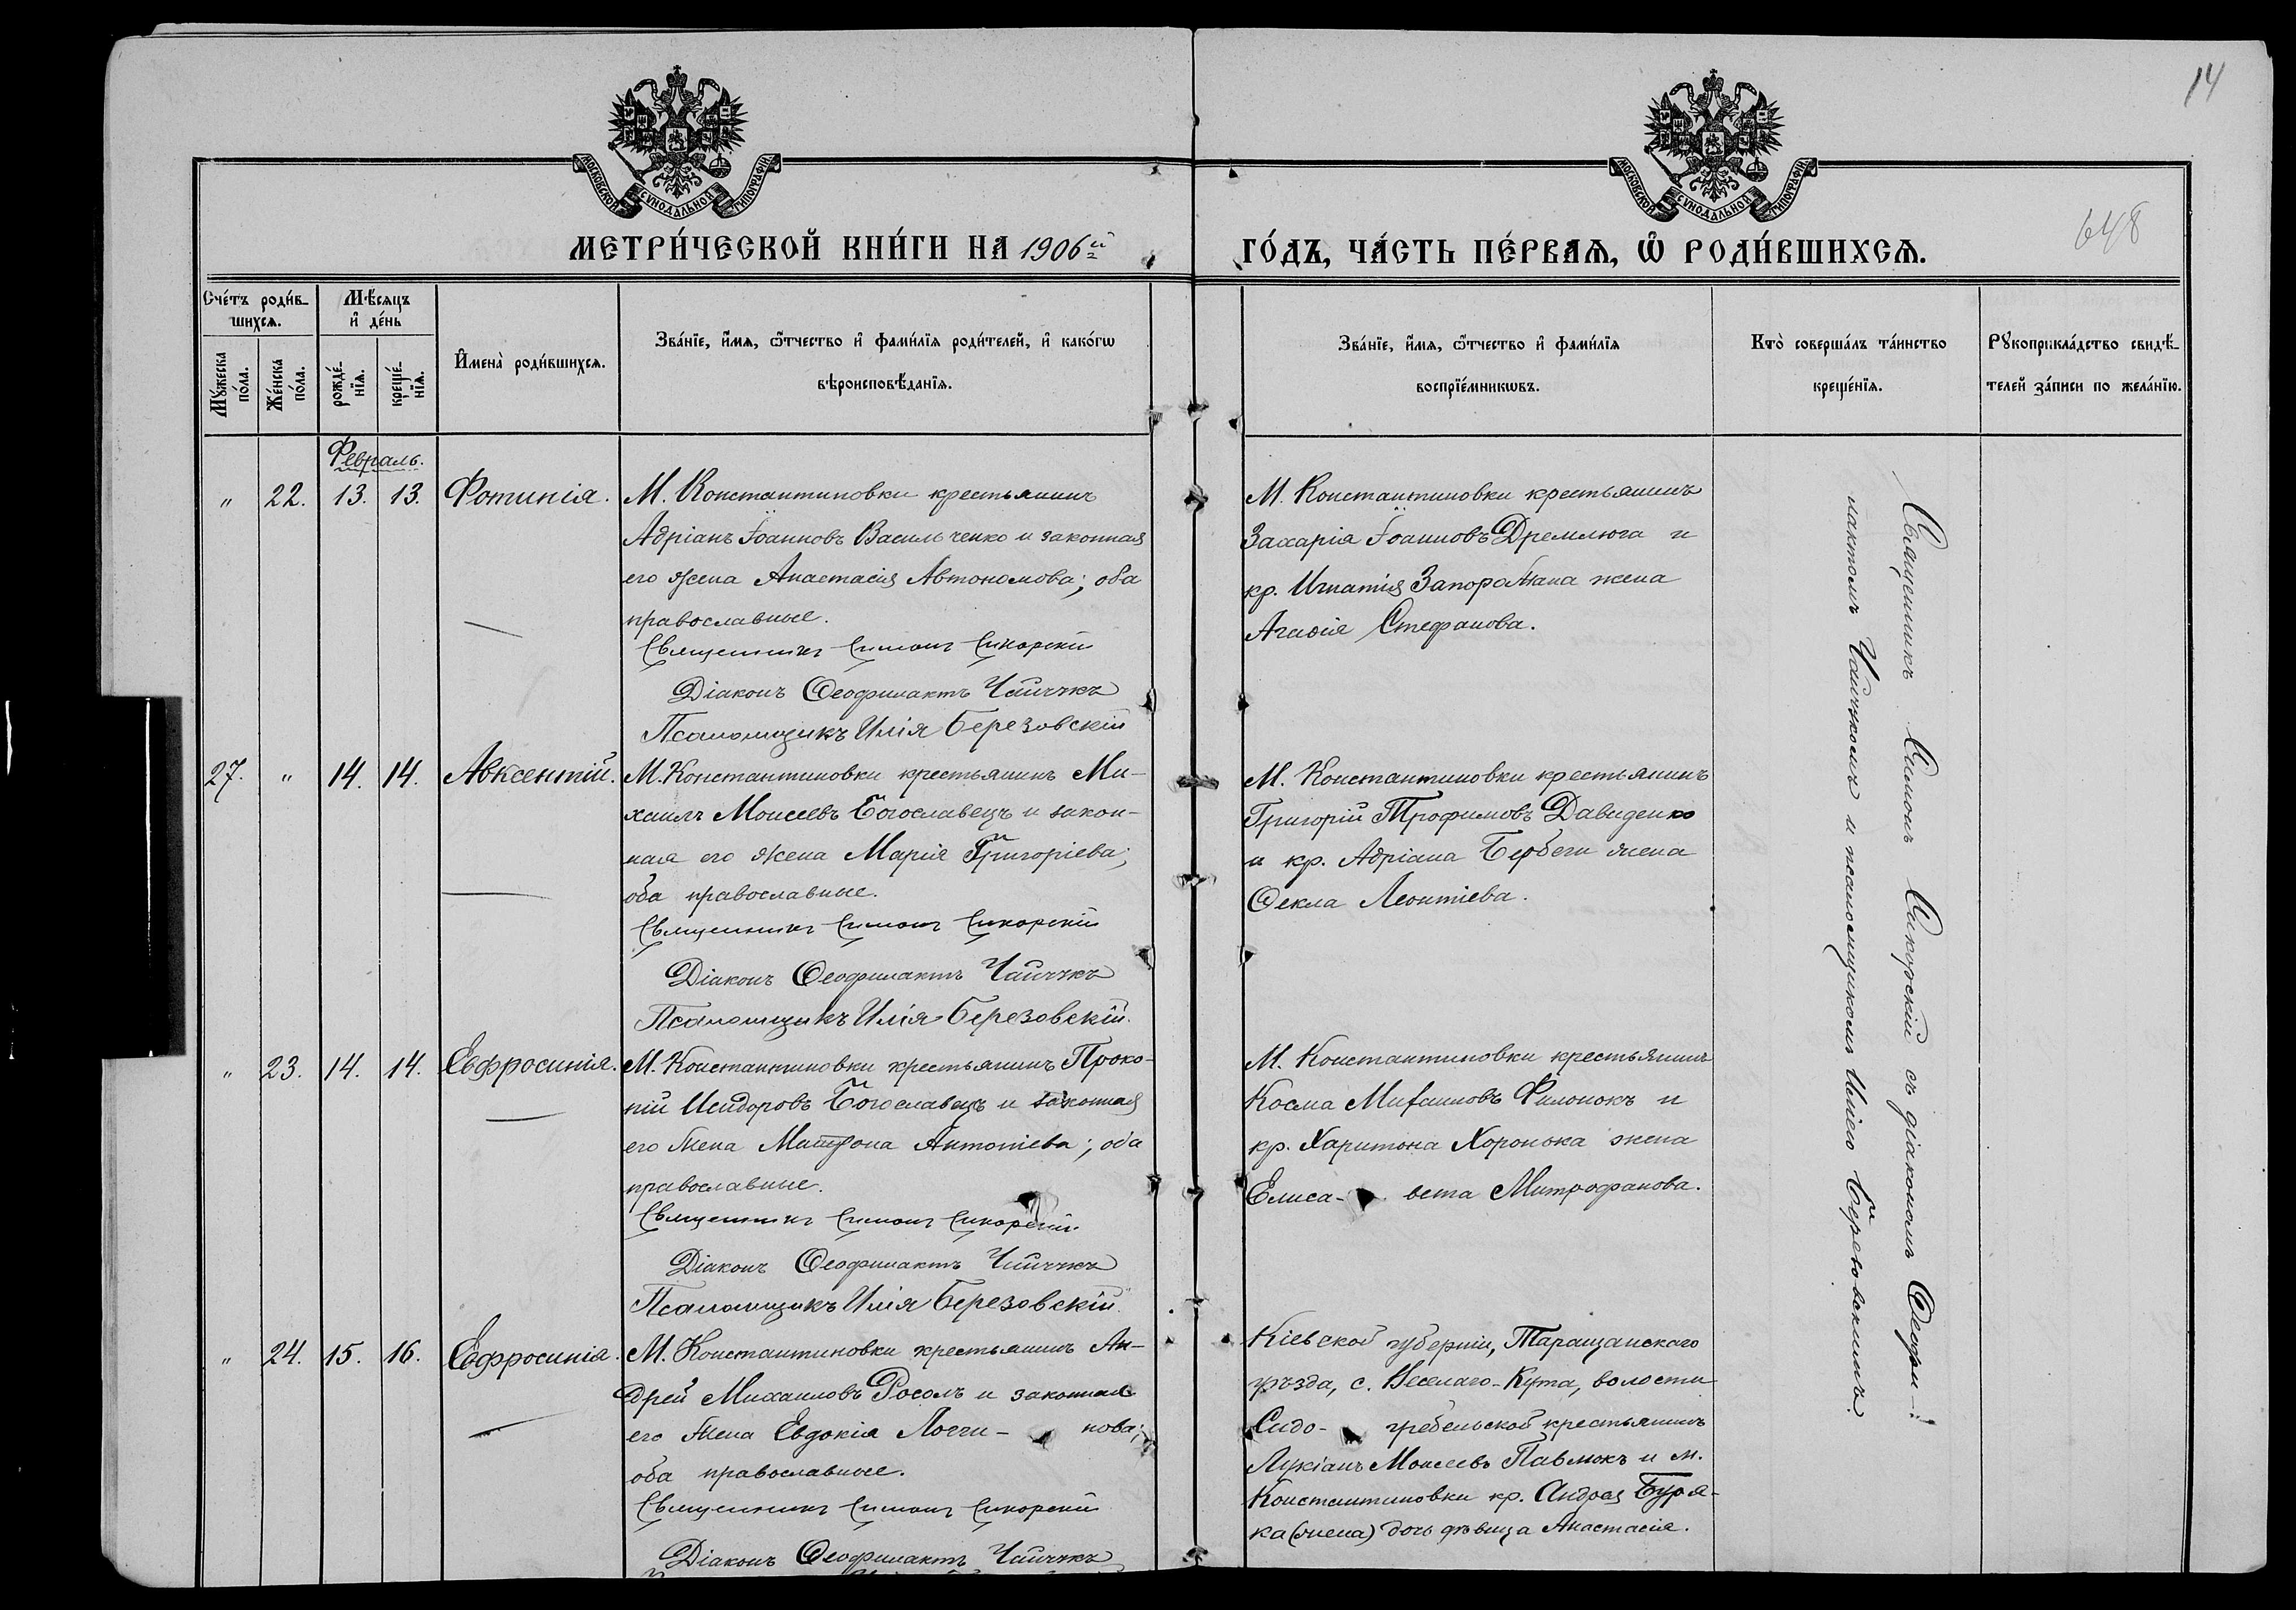 14
МОСКОВСКОЙ СѴНОДАЛЬНОЙ ТИПОГРАФІИ
МОСКОВСКОЙ СѴНОДАЛЬНОЙ ТИПОГРАФІИ
648
МЕТРИ́ЧЕСКОЙ КНИ́ГИ НА 1906й ГО́ДЪ, ЧА́СТЬ ПЕ́РВАѦ, Ѡ҆ РОДИ́ВШИХСѦ.
Сче́тъ роди́в-
шихсѧ.
Мꙋ́жеска
по́ла.
Же́нска
по́ла.
Мѣ́сѧцъ
и҆ де́нь
рожде́-
нїѧ.
креще́-
нїѧ.
И҆мена̀ роди́вшихсѧ.
Зва́нїе, и҆́мѧ, ѻ҆́тчество и҆ фами́лїѧ роди́телей, и҆ како́гѡ
вѣроисповѣ́данїѧ.
Зва́нїе, и҆́мѧ, ѻ҆́тчество и҆ фами́лїѧ
воспрїе́мникѡвъ.
Кто̀ соверша́лъ та́инство
креще́нїѧ.
Рꙋкоприкла́дство свидѣ́-
телей за́писи по жела́нїю.
Февраль.
" 22. 13. 13. Фотинія.
М. Константиновки крестьянинъ
Адріанъ Іоанновъ Васильченко и законная
его жена Анастасія Автономова; оба
православные.
Священникъ Симонъ Сикорскій
Діаконъ Ѳеофилактъ Чайчукъ
Псаломщикъ Илія Березовскій
М. Константиновки крестьянинъ
Захарія Іоанновъ Дремлюга и
кр. Игнатія Запорожана жена
Агаѳія Стефанова.
27. " 14. 14. Авксентій.
М. Константиновки крестьянинъ Ми-
хаилъ Моисеевъ Богославецъ и закон-
ная его жена Марія Григоріева;
оба православные.
Священникъ Симонъ Сикорскій
Діаконъ Ѳеофилактъ Чайчукъ
Псаломщикъ Илія Березовскій.
М. Константиновки крестьянинъ
Григорій Трофимовъ Давиденко
и кр. Адріана Бербеги жена
Ѳекла Леонтіева.
" 23. 14. 14. Евфросинія.
М. Константиновки крестьянинъ Проко-
пій Исидоровъ Богославецъ и законная
его жена Матрона Антоніева; оба
православные.
Священникъ Симонъ Сикорскій
Діаконъ Ѳеофилактъ Чайчукъ
Псаломщикъ Илія Березовскій.
М. Константиновки крестьянинъ
Косма Михаиловъ Филонокъ и
кр. Харитона Хоронька жена
Елиса- вета Митрофанова.
" 24. 15. 16. Евфросинія.
М. Константиновки крестьянинъ Ан-
дрей Михаиловъ Росолъ и законная
его жена Евдокія Логги- нова;
оба православные.
Священникъ Симонъ Сикорскій
Діаконъ Ѳеофилактъ Чайчукъ
Кіевской губерніи, Таращанскаго
уѣзда, с. Веселаго-Кута, волости
Сидо- гребельской крестьянинъ
Лукіанъ Моисеевъ Павлюкъ и м.
Константиновки кр. Андрея Буря-
ка (жена) дочь дѣвица Анастасія.
Священникъ Симонъ Сикорскій съ діакономъ Ѳеофи-
лактомъ Чайчукомъ и псаломщикомъ Иліею Березовскимъ.